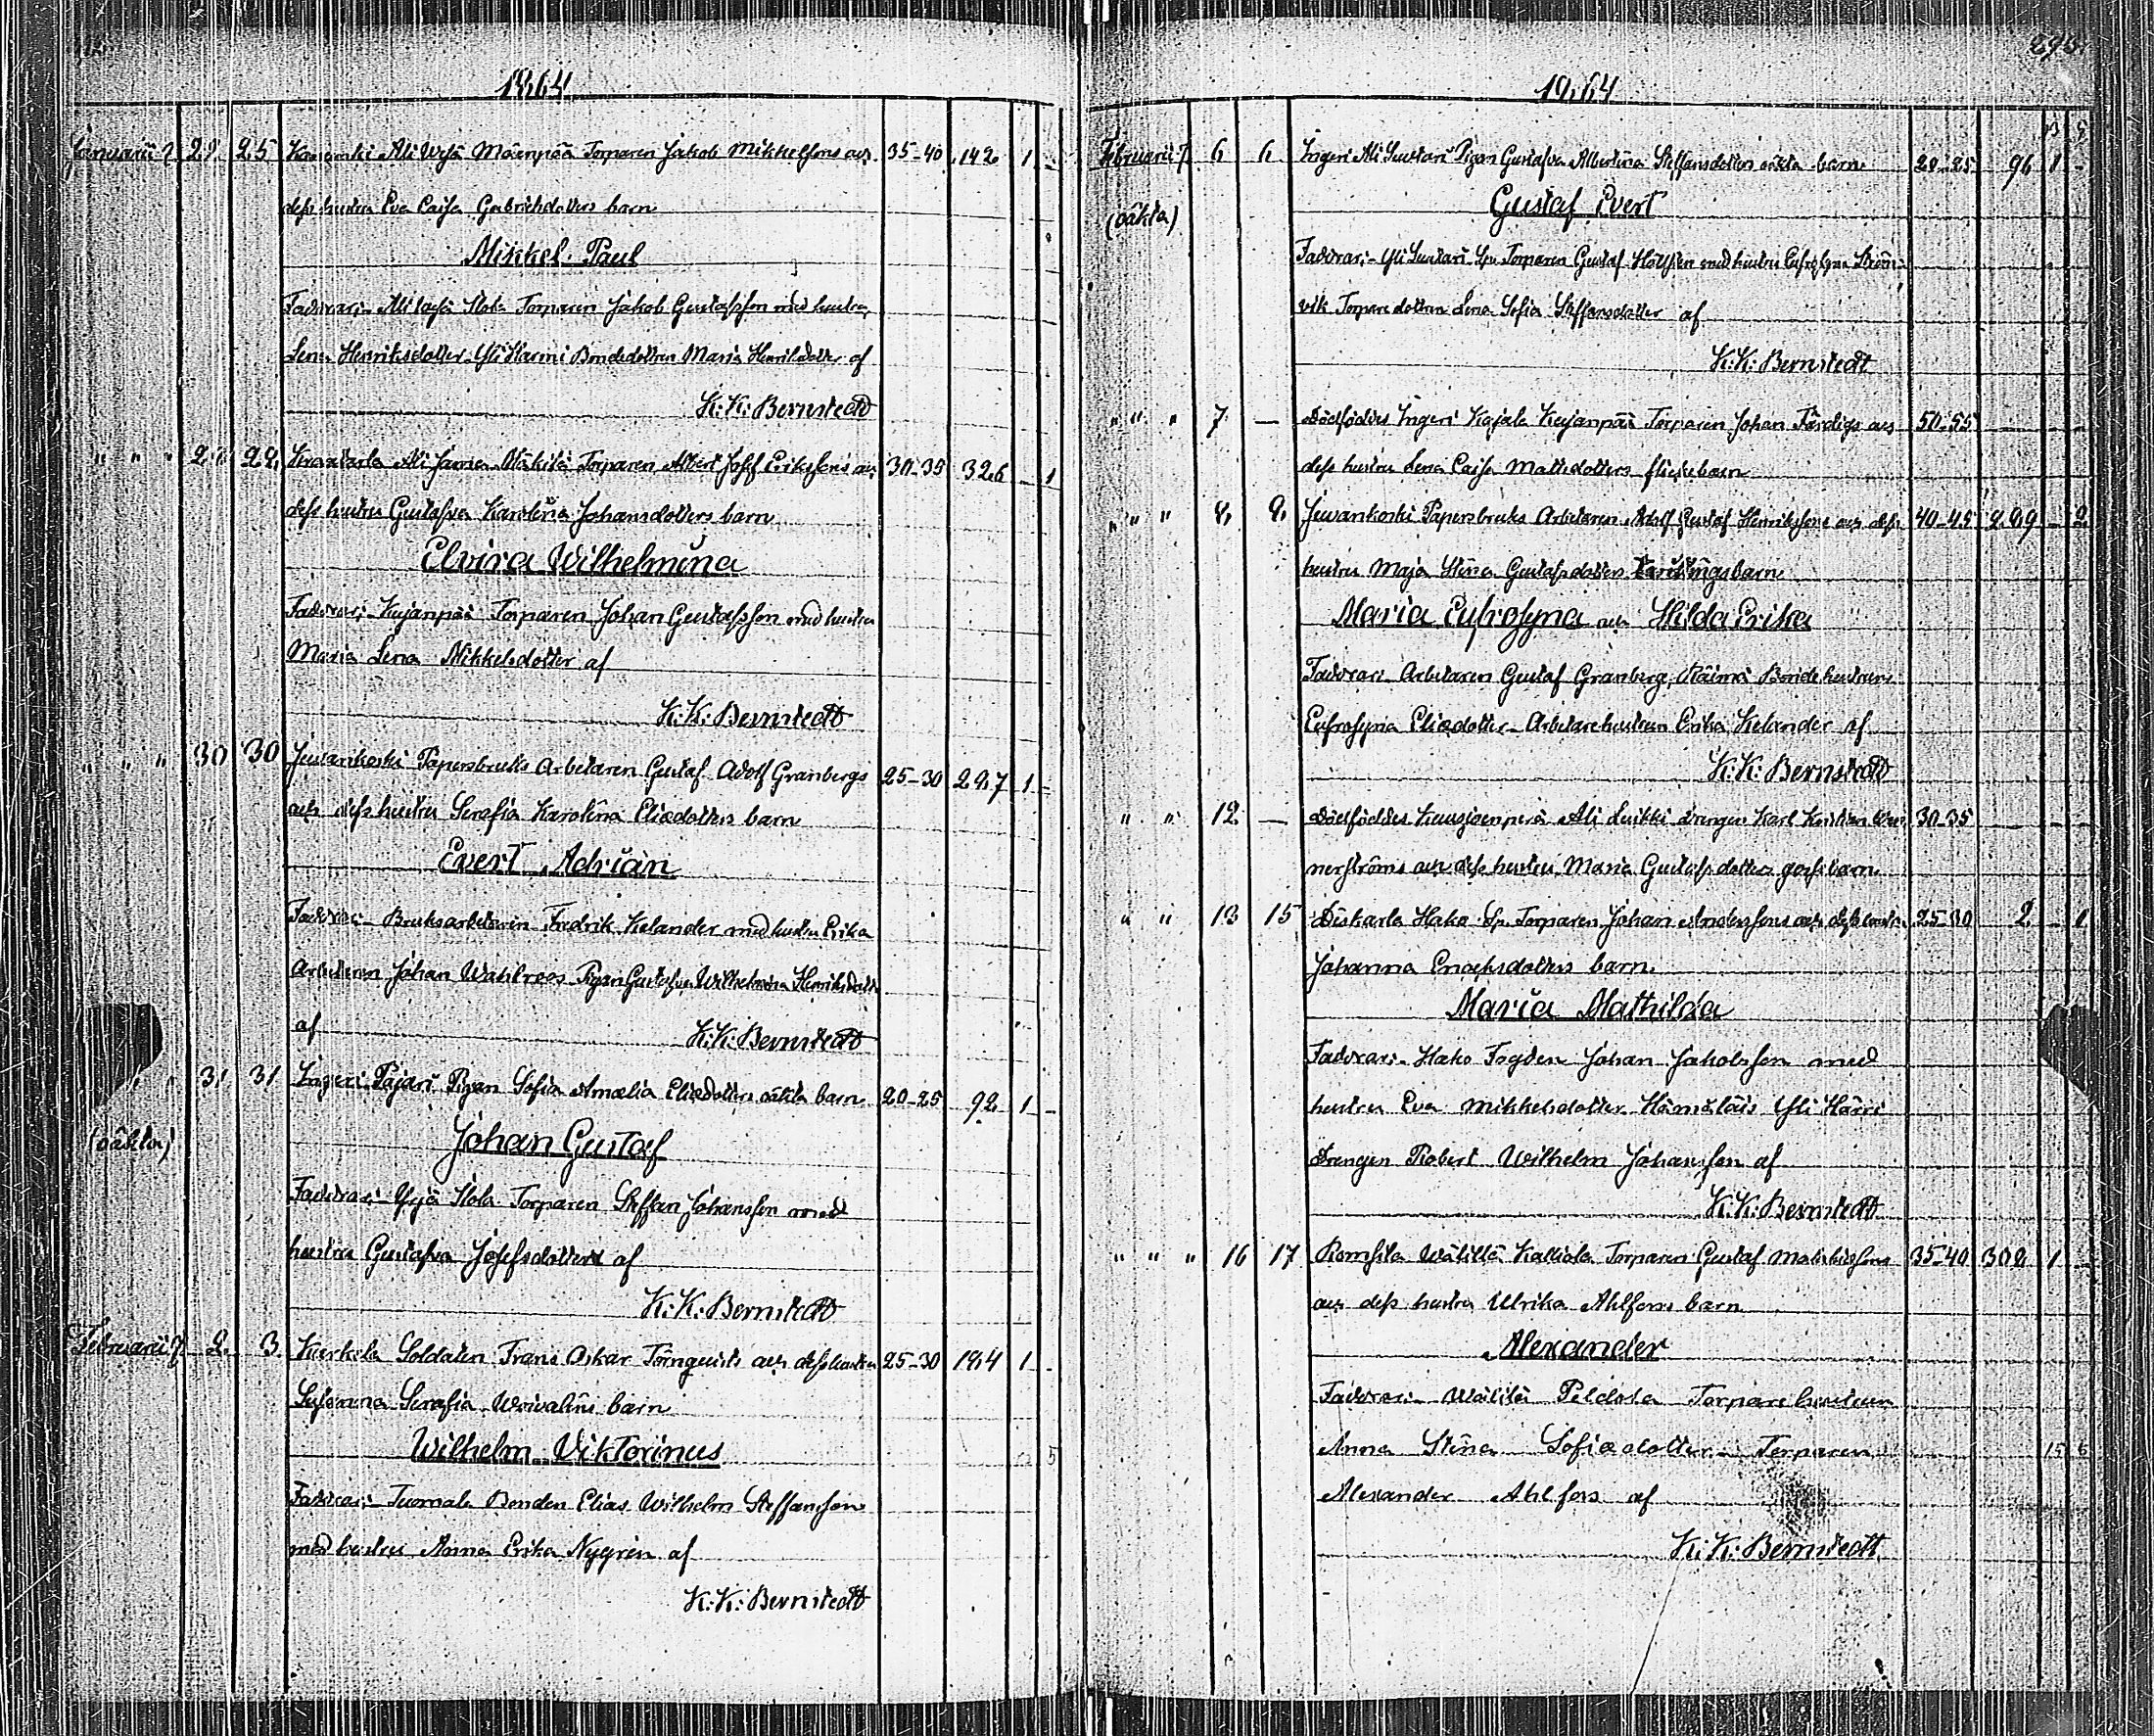 1864
Januarii 21. 25 Ali Wesä Torparen Jakob Mikkelsons och 35-40 142 1 -
dess hustru Eva Caisa Gabrielsdotters barn
Mikkel Paul
Faddrar:- Torparen Jakob Gustafsson med hustru
Lena Henriksdotter. Yli Harmi Bondedottren Maria Henriksdotter af
K: K: Bernstedt
" " " Ali Jama Mäkilä Torparen Albert Josef Eriksons och 30-35 326 - 1
dess hustru Gustafva Karolina Johansdotters barn
Elvira Wilhelmina
Faddrar:- Kujanpää Torparen Johan Gustafsson med hustru
Maria Lena Mikkelsdotter af
K: K: Bernstedt
" " " 30 30 Juvankoski Papersbruks Arbetaren Gustaf Adolf Granbergs 25-30 297 1 -
och dess hustru Serafia Karolina Eliædotters barn
Evert Adrian
Faddrar:- Bruksarbetaren Fredrik Kelander med hustru Erika
Arbetaren Johan Wahlroos Pigan Gustafva Wilhelmina Henriksdotter
af K: K: Bernstedt
31 31 Ingeri Pajari Pigan Sofia Amalia Eliædotters oäkta barn 20-25 92 1 -
(oäkta)
Johan Gustaf
Faddrar:- Torparen Steffan Johansson med
hustru Gustafva Josefsdotter af
K: K: Bernstedt
Februarii 2. 3. Kuerkela Soldaten Frans Oskar Törnquists och dess hustru 25-30 184 1 -
Susanna Serafia barn
Wilhelm Viktorinus
5
Faddrar:- Tuomala Bonden Elias Wilhelm Steffansson
med hustru Anna Erika Nygrén af
K: K: Bernstedt
1864
Februarii 6 6 Ingeri Ali Suutari Pigan Gustafva Albertina Steffansdotters oäkta barn 20-25 96 1 -
(oäkta)
Gustaf Evert
Faddrar:- Yli Suutari Torparen Gustaf med hustru Eufrosyna
vik Torparedottren Lena Sofia Steffansdotter af
K: K: Bernstedt
" " " 7 — Dödföddes Ingeri Kajala Kujanpää Torparen Johan Färdigs och 50-55
dess hustru Lena Caisa Mattsdotters flickebarn
" " " 8. 9. Juvankoski Papersbruks Arbetaren Adolf Gustaf Henrikssons och dess 40-45 299 - 2
hustru Maja Stina Gustafsdotters tvillingsbarn
Maria Eufrosyna och Hilda Erika
Faddrar:- Arbetaren Gustaf Granberg, Bondehustrun
Eufrosyna Eliædotter - Arbetarehustrun Erika Kelander af
K: K: Bernstedt
" " 12 — Dödföddes Ali Luikki Drengen Karl Kristian 30-35
nerströms och dess hustru Maria Gustafsdotters gossebarn
" " 13 15 Hako Sp. Torparen Johan Anderssons och dess hustru 25-30 2 - 1
Johanna Enochsdotters barn
Maria Mathilda
Faddrar:- Hako Fogden Johan Jakobsson med
hustru Eva Mikkelsdotter Hämäläis Yli Härri
Drengen Robert Wilhelm Johansson af
K: K: Bernstedt
" " " 16 17 Romsila Wälitlä Kalliola Torparen Gustaf 35-40 302 1 -
och dess hustru Ulrika Ahlfors barn
Alexander
Faddrar:- Wälitlä Peldola Torparehustrun
Anna Stina Sofiædotter - Torparen 15 6
Alexander Ahlfors af
K: K: Bernstedt